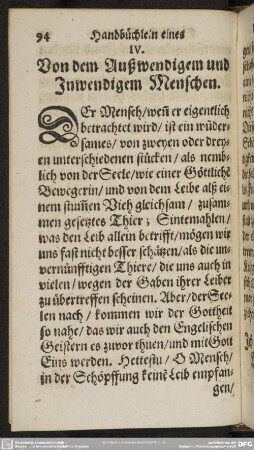 94 Handbüchlein eines
IV.
Von dem Außwendigem und
Inwendigem Menschen.
DEr Mensch/ weñ er eigentlich
betrachtet wird/ ist ein wûder-
sames/ von zweyen oder drey-
en unterschiedenen stücken/ als nemb-
lich von der Seele/ wie einer Göttliche
Bewegerin/ und von dem Leibe alß ei-
nem stum̃en Vieh gleichsam/ zusam-
men gesetztes Thier; Sintemahlen/
was den Leib allein betrifft/ mögen wir
uns fast nicht besser schätzen/ als die un-
vernünfftigen Thiere/ die uns auch in
vielen/ wegen der Gaben ihrer Leiber
zu übertreffen scheinen. Aber/ der See-
len nach/ kommen wir der Gottheit
so nahe/ das wir auch den Engelischen
Geistern es zuvor thuen/ und mit Gott
Eins werden. Hettestu/ O Mensch/
in der Schöpffung keinē Leib empfan-
gen/